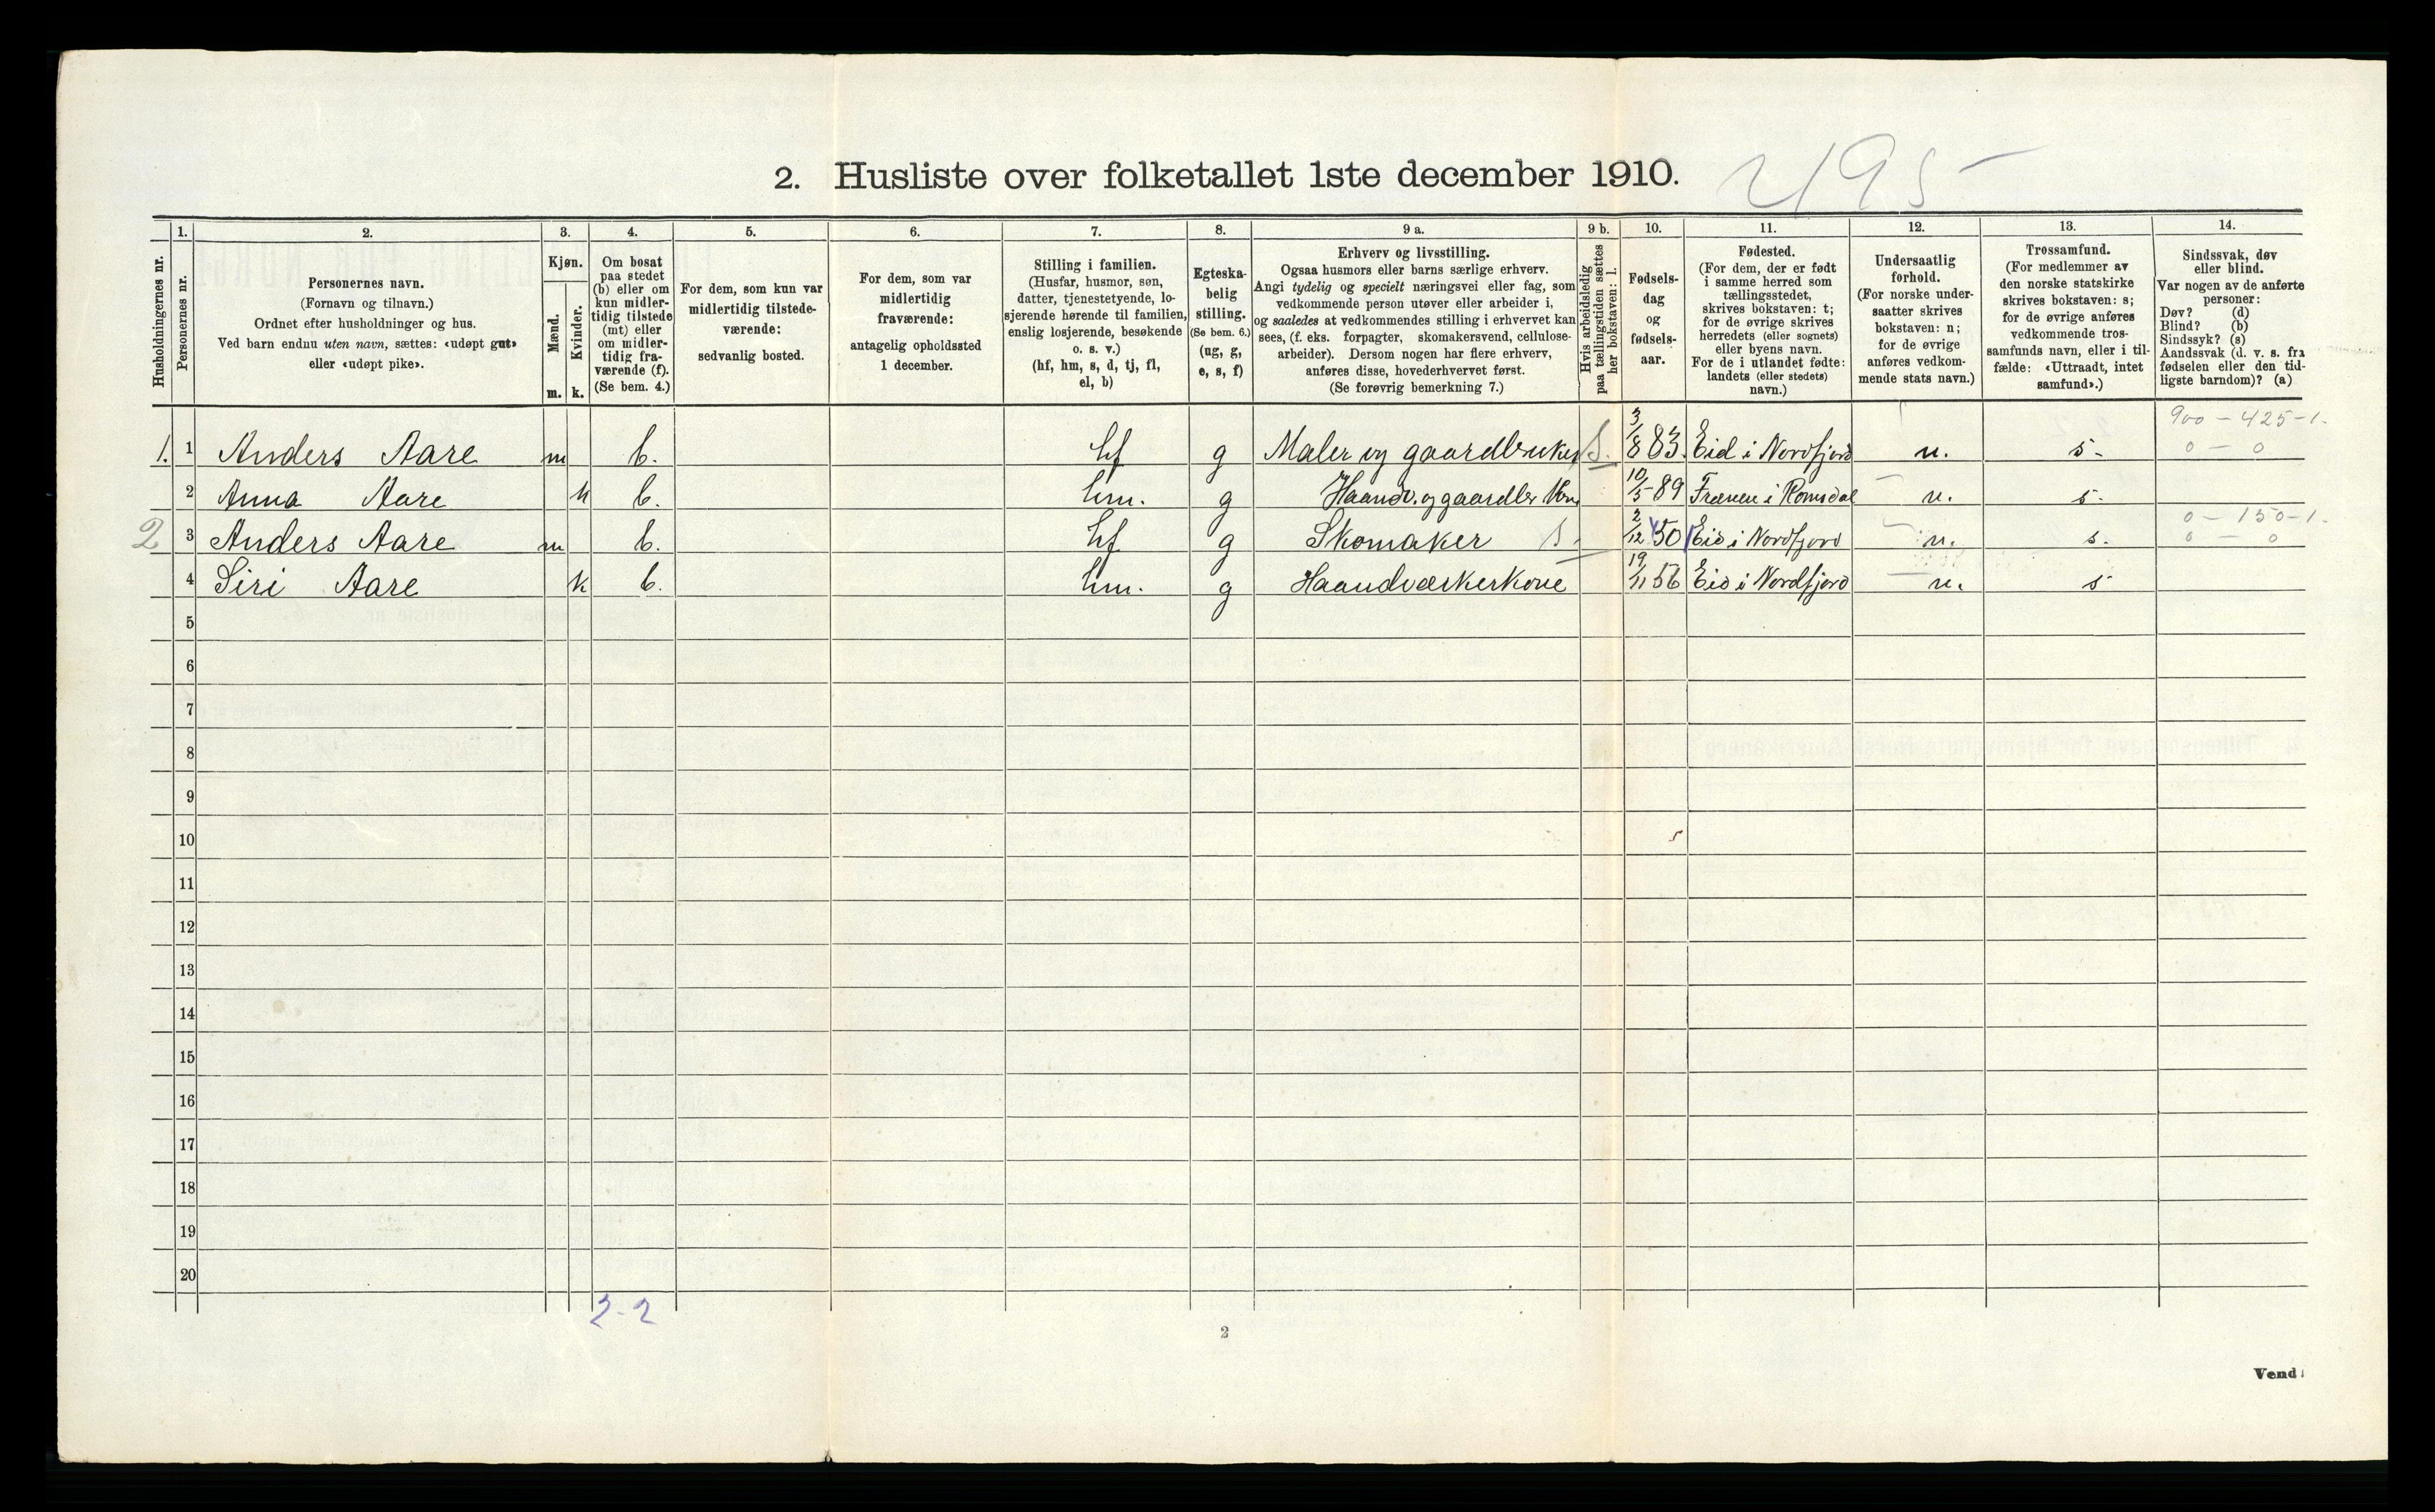 2. Husliste over folketallet 1ste december 1910.
495
Husholdningernes nr.
1.
Personernes nr.
2.
Personernes navn.
(Fornavn og tilnavn.)
Ordnet efter husholdninger og hus.
Ved barn endnu uten navn, sættes: «udøpt gut»
eller «udøpt pike».
3.
Kjøn.
Mænd.
m.
Kvinder.
k.
4.
Om bosat
paa stedet
(b) eller om
kun midler-
tidig tilstede
(mt) eller
om midler-
tidig fra-
værende (f).
(Se bem. 4.)
5.
For dem, som kun var
midlertidig tilstede-
værende:
sedvanlig bosted.
6.
For dem, som var
midlertidig
fraværende:
antagelig opholdssted
1 december.
7.
Stilling i familien.
(Husfar, husmor, søn,
datter, tjenestetyende, lo-
sjerende hørende til familien,
enslig losjerende, besøkende
o. s. v.)
(hf, hm, s, d, tj, fl,
el, b)
8.
Egteska-
belig
stilling.
(Se bem. 6.)
(ug, g,
e, s, f)
9 a.
Erhverv og livsstilling.
Ogsaa husmors eller barns særlige erhverv.
Angi tydelig og specielt næringsvei eller fag, som
vedkommende person utøver eller arbeider i,
og saaledes at vedkommendes stilling i erhvervet kan
sees, (f. eks. forpagter, skomakersvend, cellulose-
arbeider). Dersom nogen har flere erhverv,
anføres disse, hovederhvervet først.
(Se forøvrig bemerkning 7.)
9 b.
Hvis arbeidsledig
paa tællingstiden sættes
her bokstaven: l.
10.
Fødsels-
dag
og
fødsels-
aar.
11.
Fødested.
(For dem, der er født
i samme herred som
tællingsstedet,
skrives bokstaven: t;
for de øvrige skrives
herredets (eller sognets)
eller byens navn.
For de i utlandet fødte:
landets (eller stedets)
navn.)
12.
Undersaatlig
forhold.
(For norske under-
saatter skrives
bokstaven: n;
for de øvrige
anføres vedkom-
mende stats navn.)
13.
Trossamfund.
(For medlemmer av
den norske statskirke
skrives bokstaven: s;
for de øvrige anføres
vedkommende tros-
samfunds navn, eller i til-
fælde: «Uttraadt, intet
samfund».)
14.
Sindssvak, døv
eller blind.
Var nogen av de anførte
personer:
Døv? (d)
Blind? (b)
Sindssyk? (s)
Aandssvak (d. v. s. fra
fødselen eller den tid-
ligste barndom)? (a)
900 - 425 - 1.
1. 1 Anders Aare m b. hf g Maler og gaardbruker S. 3/8 83. Eid i Nordfjord n. s. 0 - 0
2 Anna Aare k b. hm. g Haandv. og gaardbr kone 10/5 - 89 Frænen i Romsdal n. s.
0 - 150 - 1.
2 3 Anders Aare m b. hf g Skomaker S. 2/12 50 Eid i Nordfjord n. s. 0 - 0
4 Siri Aare k b. hm. g Haandværkerkone 19/11 56 Eid i Nordfjord n. s
5
6
7
8
9
10
11
12
13
14
15
16
17
18
19
20
2-2
2
Vend